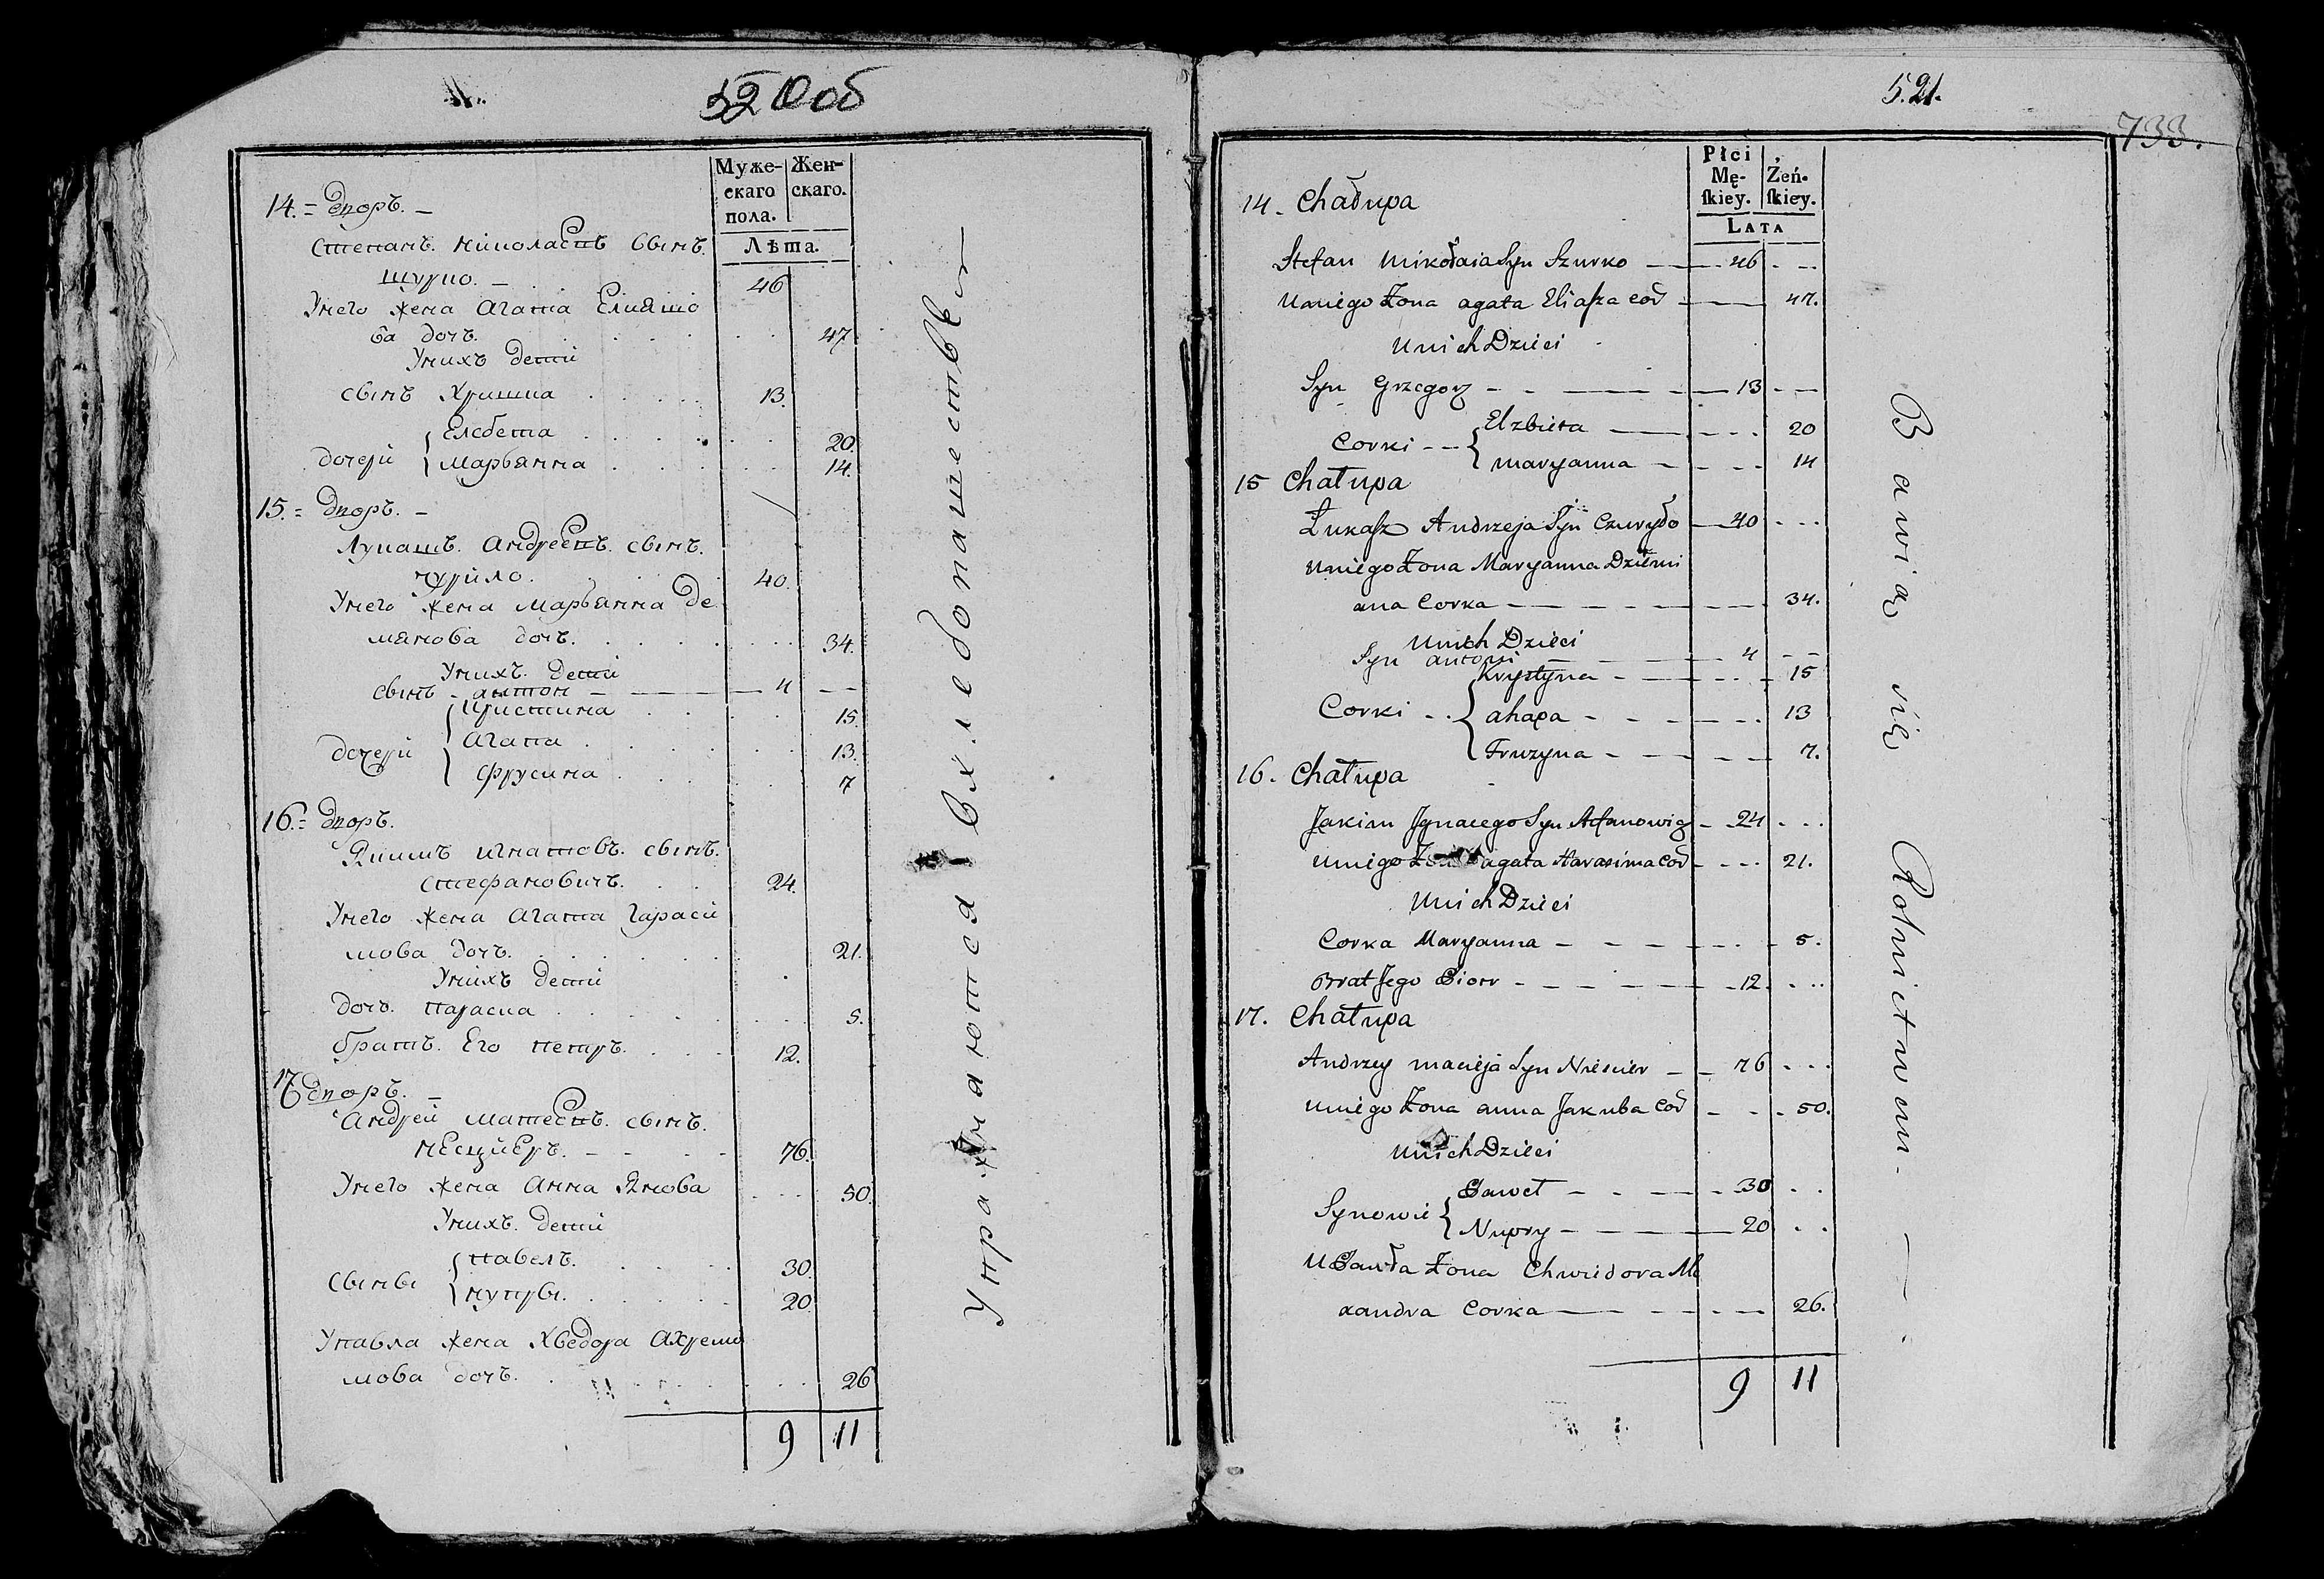 520 об
Муже-
скаго
пола.
Жен-
скаго.
Лѣта.
14. = Дворъ. –
Степанъ. Николаевъ Сынъ.
Шурко. – 46
Унего жена Агата Елияшо
ва дочъ. 47.
Унихъ дети
сынъ Хришка 13.
дочери { Елсбета 20.
Марьянна 14.
15. = Дворъ. –
Лукашъ. Андреевъ. сынъ.
Чурило. 40.
Унего жена Марьянна Де
мянова дочъ. 34.
Унихъ. дети
сынъ – антон – 4 – –
дочери { Кристина 15.
Агапа 13.
Фрусина 7
16. = Дворъ.
Якимъ Игнатовъ. сынъ.
Стефановичъ. 24.
Унего жена Агата Гараси
мова дочъ. 21.
Унихъ дети
дочъ. Параска 5.
братъ. Его петръ. 12.
17 Дворъ. –
Андрей Матеевъ. сынъ.
Несцйеръ. – 76.
Унего жена Анна Янова 50.
Унихъ. дети
Сыны { павелъ. 30.
Нупры. 20.
Упавла жена Хведора Ахремо
мова дочъ. 26
9 11
Упражнаются Вхлебопашествѣ
5.21.
733.
Płci
Mę-
skiey.
Żeń-
skiey.
LATA
14. Chałupa
Stefan Mikołaia Syn Szurko 46
Uniego Żona agata Eliasza Cor 47.
Unich Dzieci
Syn Grzegorz 13
Corki { Elzbieta 20
Maryanna 14
15 Chałupa
Łukasz Andrzeja Syn Czuryło 40
Uniego Żona Maryanna Dziemi
ana Corka 34.
Unich Dzieci
Syn antoni 4
Corki { Krystyna 15
ahapa 13
Fruzyna 7.
16. Chałupa
Jakim Jgnacego Syn Stefanowicz 24
Uniego Żona agata Harasima Cor 21.
Unich Dzieci
Corka Maryanna 5.
Brat Jego Piotr 12.
17. Chałupa
Andrzey Macieja Syn Niescier 76
Uniego Żona anna Jakuba Cor 50.
Unich Dzieci
Synowie { Paweł 30
Nupry 20
U Pawła Żona Chwiedora Ale
xandra Corka 26.
9 11
Bawią się Rolnictwem